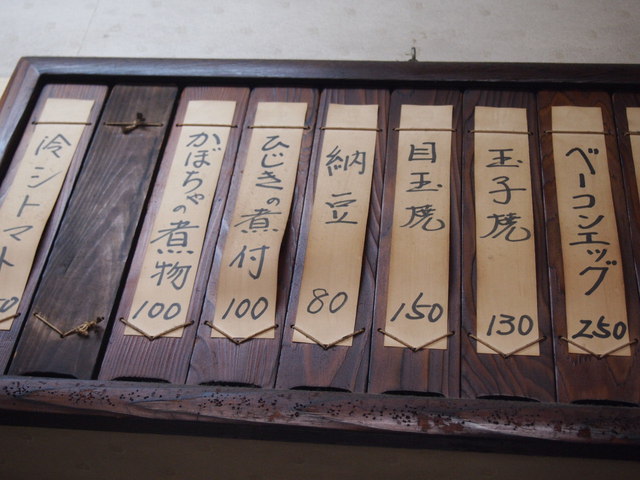 ベーコンエッグ 250
玉子焼 130
目玉焼 150
納豆 80
ひじきの煮付 100
かぼちゃの煮物 100
冷シトマト